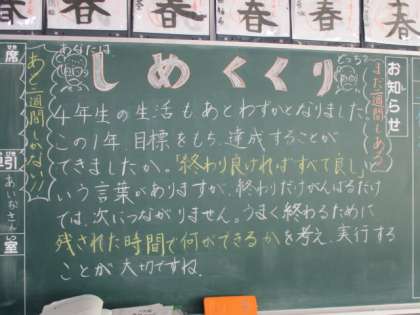 春 春 春 春 春 春 春
あなたは
しめくくり
どっち?
お知らせ
まだ二週間もある
あと二週間しかない!!
4年生の生活も、あとわずかとなりました。
この1年、目標をもち、達成することが
できましたか。「終わり良ければすべて良し」と
いう言葉がありますが、終わりだけがんばるだけ
では、次につながりません。うまく終わるために
残された時間で何ができるかを考え、実行する
ことが大切ですね。
席
引
あいおさん
室